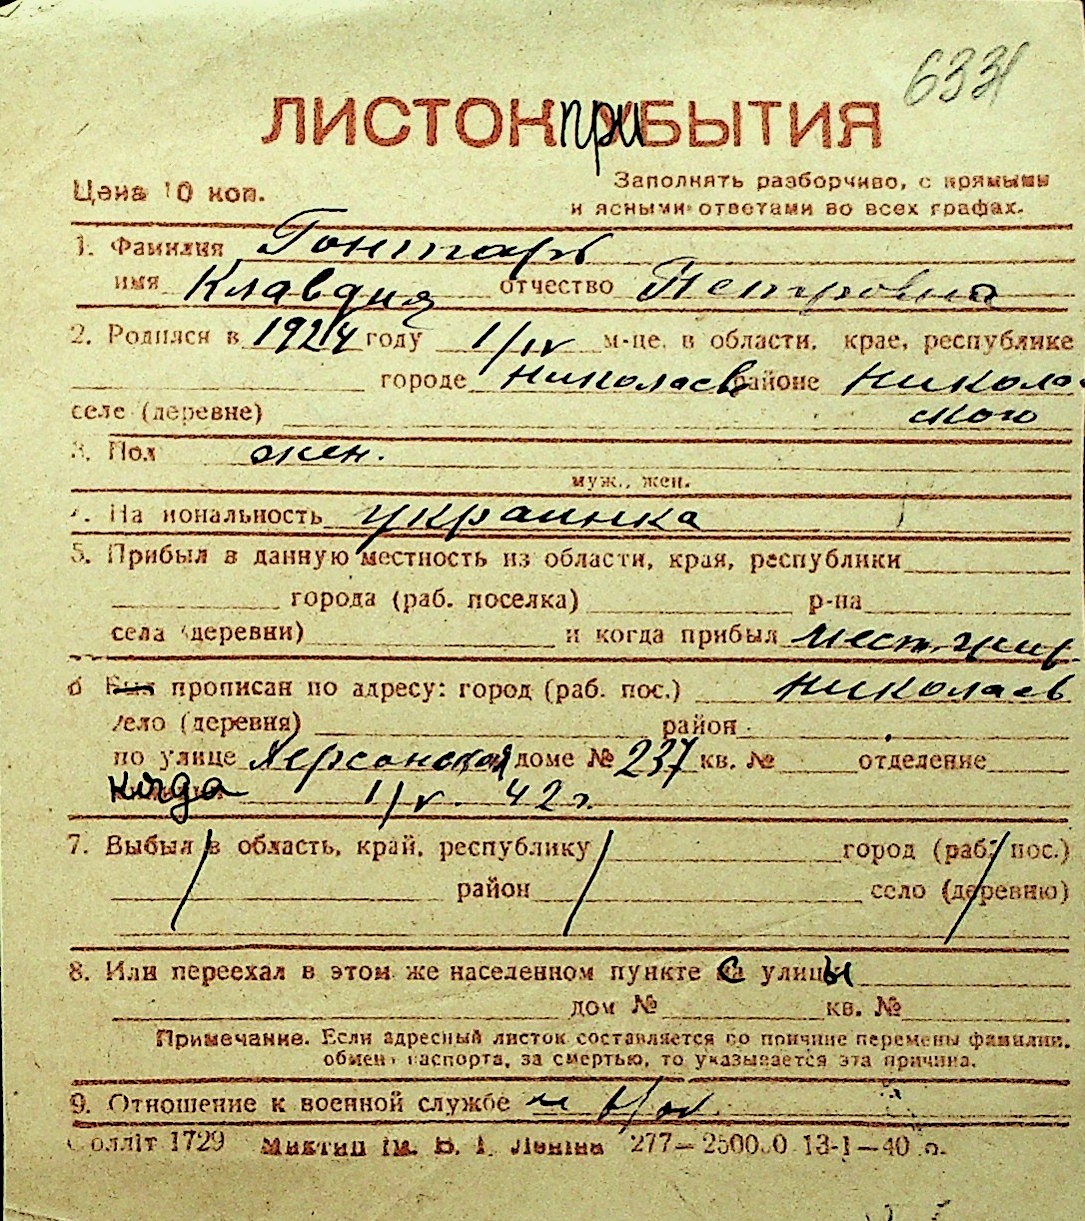 6331
ЛИСТОК ПРИБЫТИЯ
Цена 10 коп.
Заполнять разборчиво, с прямыми
и ясными ответами во всех графах.
1. Фамилия Гонтарь
имя Клавдия отчество Петровна
2. Родился в 1924 году 1/IV м-це, в области, крае, республике
городе Николаев районе Николаев
селе (деревне) ского
3. Пол жен.
муж., жен.
4. На иональность украинка
5. Прибыл в данную местность из области, края, республики
города (раб. поселка) р-на
села (деревни) и когда прибыл мест. жит.
6 Был прописан по адресу: город (раб. пос.) Николаев
село (деревня) район
по улице Херсонской доме № 237 кв. № отделение
когда 1/V. 42 г.
7. Выбыл в область, край, республику город (раб. пос.)
район село (деревню)
8. Или переехал в этом же населенном пункте с улицы
дом № кв. №
Примечание. Если адресный листок составляется по причине перемены фамилии,
обмен паспорта, за смертью, то указывается эта причина.
9. Отношение к военной службе
Солліт 1729 ім. В. І. Леніна 277— 13-I—40 р.